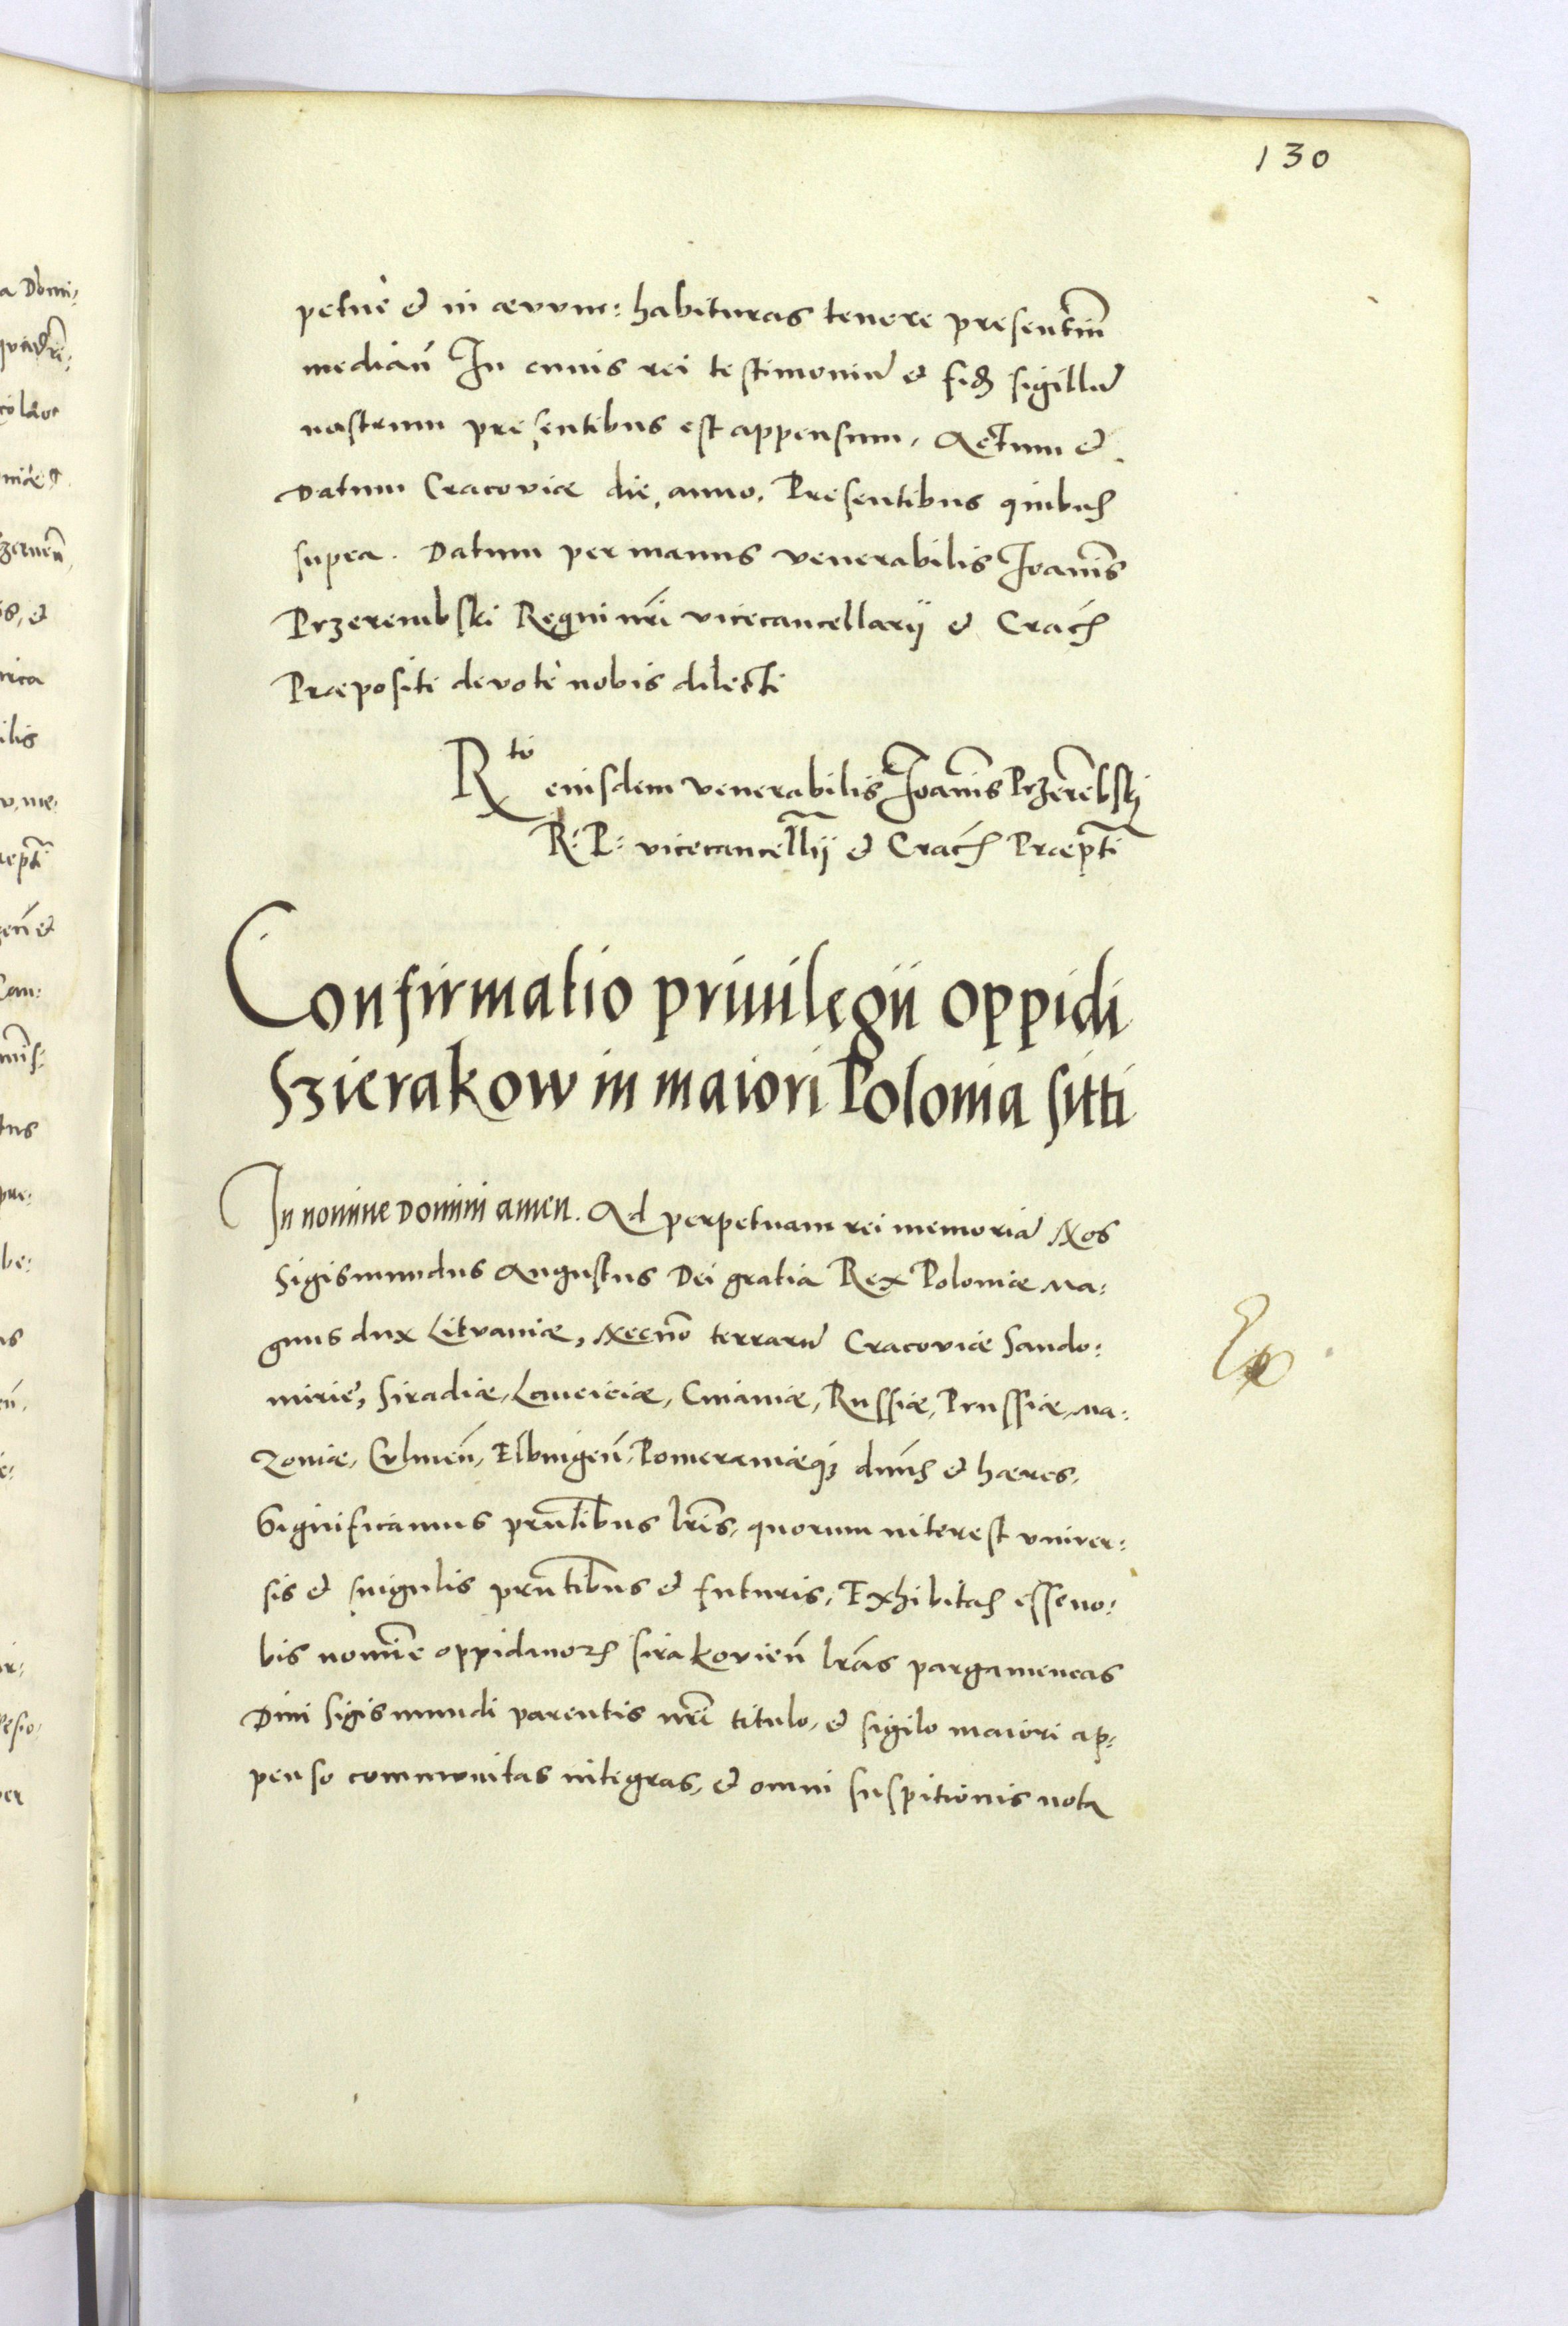 130
petue et in ævvm: habituras tenere presentiũ
mediañ In cuius rei testimoniũ et fidẽ sigillũ
nostrum presentibus est appensum, Actum et
Datum Cracoviæ die, anno, Presentibus quibus
supra. Datum per manus venerabilis Ioañis
Przerembski Regni nri vicecancellarij et Crac̃
Præpositi devote nobis dilecti
R to eiusdem venerabilis Ioañis Przerẽbskj
R: P: vicecancellij et Crac̃ Præpti
Confirmatio priuilegii oppidi
Szierakow in maiori Polonia sitti
In nomine Domini amen. Ad perpetuam rei memoriã Nos
Sigismundus Augustus Dei gratia Rex Poloniæ Ma:
gnus dux Litvaniæ, Necnõ terrarũ Cracoviæ Sando:
mirie, Siradiæ, Lanciciæ, Cuiaviæ, Russiæ, Prussiæ, Ma:
Zoviæ, Culmeñ, Elbingeñ, Pomeraniæq3 dñs et hæres,
Significamus prñtibus lris, quorum interest univer:
sis et singulis prñtibus et futuris, Exhibitas esse no:
bis nomĩe oppidanorũ sirakovieñ lras pargameneas
Diui Sigismundi parentis nri titulo, et sigilo maiori ap:
penso communitas integras, et omni suspitionis nota